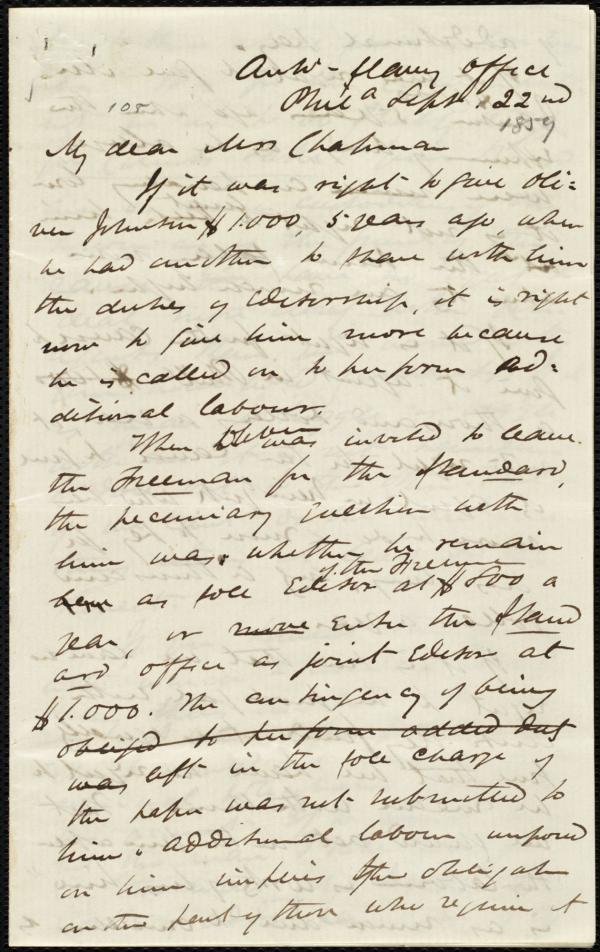 Anti-slavery office
Phila Sept. 22nd
1859
105
My dear Mrs Chapman
If it was right to give Oli=
ver Johnson $1.000, 5 years ago, when
he had another to share with him
the duties of Editorship, it is right
now to give him more because
he is called on to perform ad=
ditional labour.
When Oliver was invited to leave
the Freeman for the Standard,
the pecuniary question with
him was: whether he remain
here as sole Editor of the Freeman at $800 a
year, or move enter the Stand
ard office as joint Editor at
$1.000. The contingency of being
obliged to perform added duty
was left in the sole charge of
the paper was not submitted to
him. Additional labour imposed
on him implies the obligation
on the part of those who require it